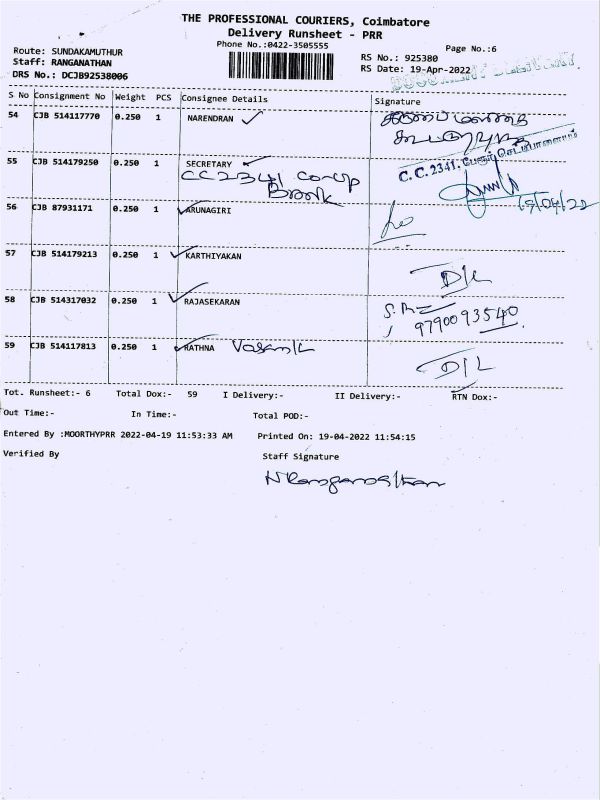 THE PROFESSIONAL COURIERS, Coimbatore
Delivery Runsheet - PRR
Phone No.:0422-3505555
Page No.:6
Route: SUNDAKAMUTHUR
Staff: RANGANATHAN
DRS No.: DCJB92538006
RS No.: 925380
RS Date: 19-Apr-2022
S No Consignment No Weight PCS Consignee Details Signature
54 CJB 514117770 0.250 1 NARENDRAN
55 CJB 514179250 0.250 1 SECRETARY
CC2341 CO-OP
Bank
C.C.2341.
19/04/22
56 CJB 87931171 0.250 1 ARUNAGIRI
57 CJB 514179213 0.250 1 KARTHIYAKAN
D/L
58 CJB 514317032 0.250 1 RAJASEKARAN
9790093540
59 CJB 514117813 0.250 1 RATHNA
D/L
Tot. Runsheet:- 6 Total Dox:- 59 I Delivery:- II Delivery:- RTN Dox:-
Out Time:- In Time:- Total POD:-
Entered By :MOORTHYPRR 2022-04-19 11:53:33 AM Printed On: 19-04-2022 11:54:15
Verified By Staff Signature
N Ranganathan